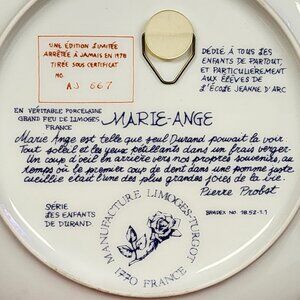 UNE ÉDITION LIMITÉE
ARRÊTÉE À JAMAIS EN 1978
TIRÉE SOUS CERTIFICAT
NO.
AJ 667
DÉDIÉ À TOUS LES
ENFANTS DE PARTOUT,
ET PARTICULIÈREMENT
AUX ÉLÈVES DE
L'ÉCOLE JEANNE D'ARC
EN VÉRITABLE PORCELAINE
GRAND FEU DE LIMOGES
FRANCE
MARIE-ANGE
Marie Ange est telle que seul Durand pouvait la voir
Tout soleil et les yeux pétillants dans un frais verger.
Un coup d'oeil en arrière vers nos propres souvenirs, au
temps où le premier coup de dent dans une pomme juste
cueillie était l'une des plus grandes joies de la vie.
Pierre Probst
SÉRIE
LES ENFANTS
DE DURAND
MANUFACTURE LIMOGES-TURGOT
1770 FRANCE
BRADEX NO. 18.52-1.1